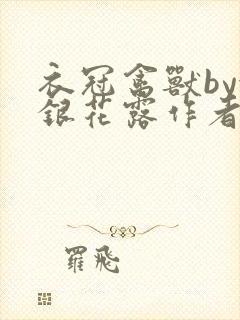 衣冠禽獸by
銀花露作者
羅飛